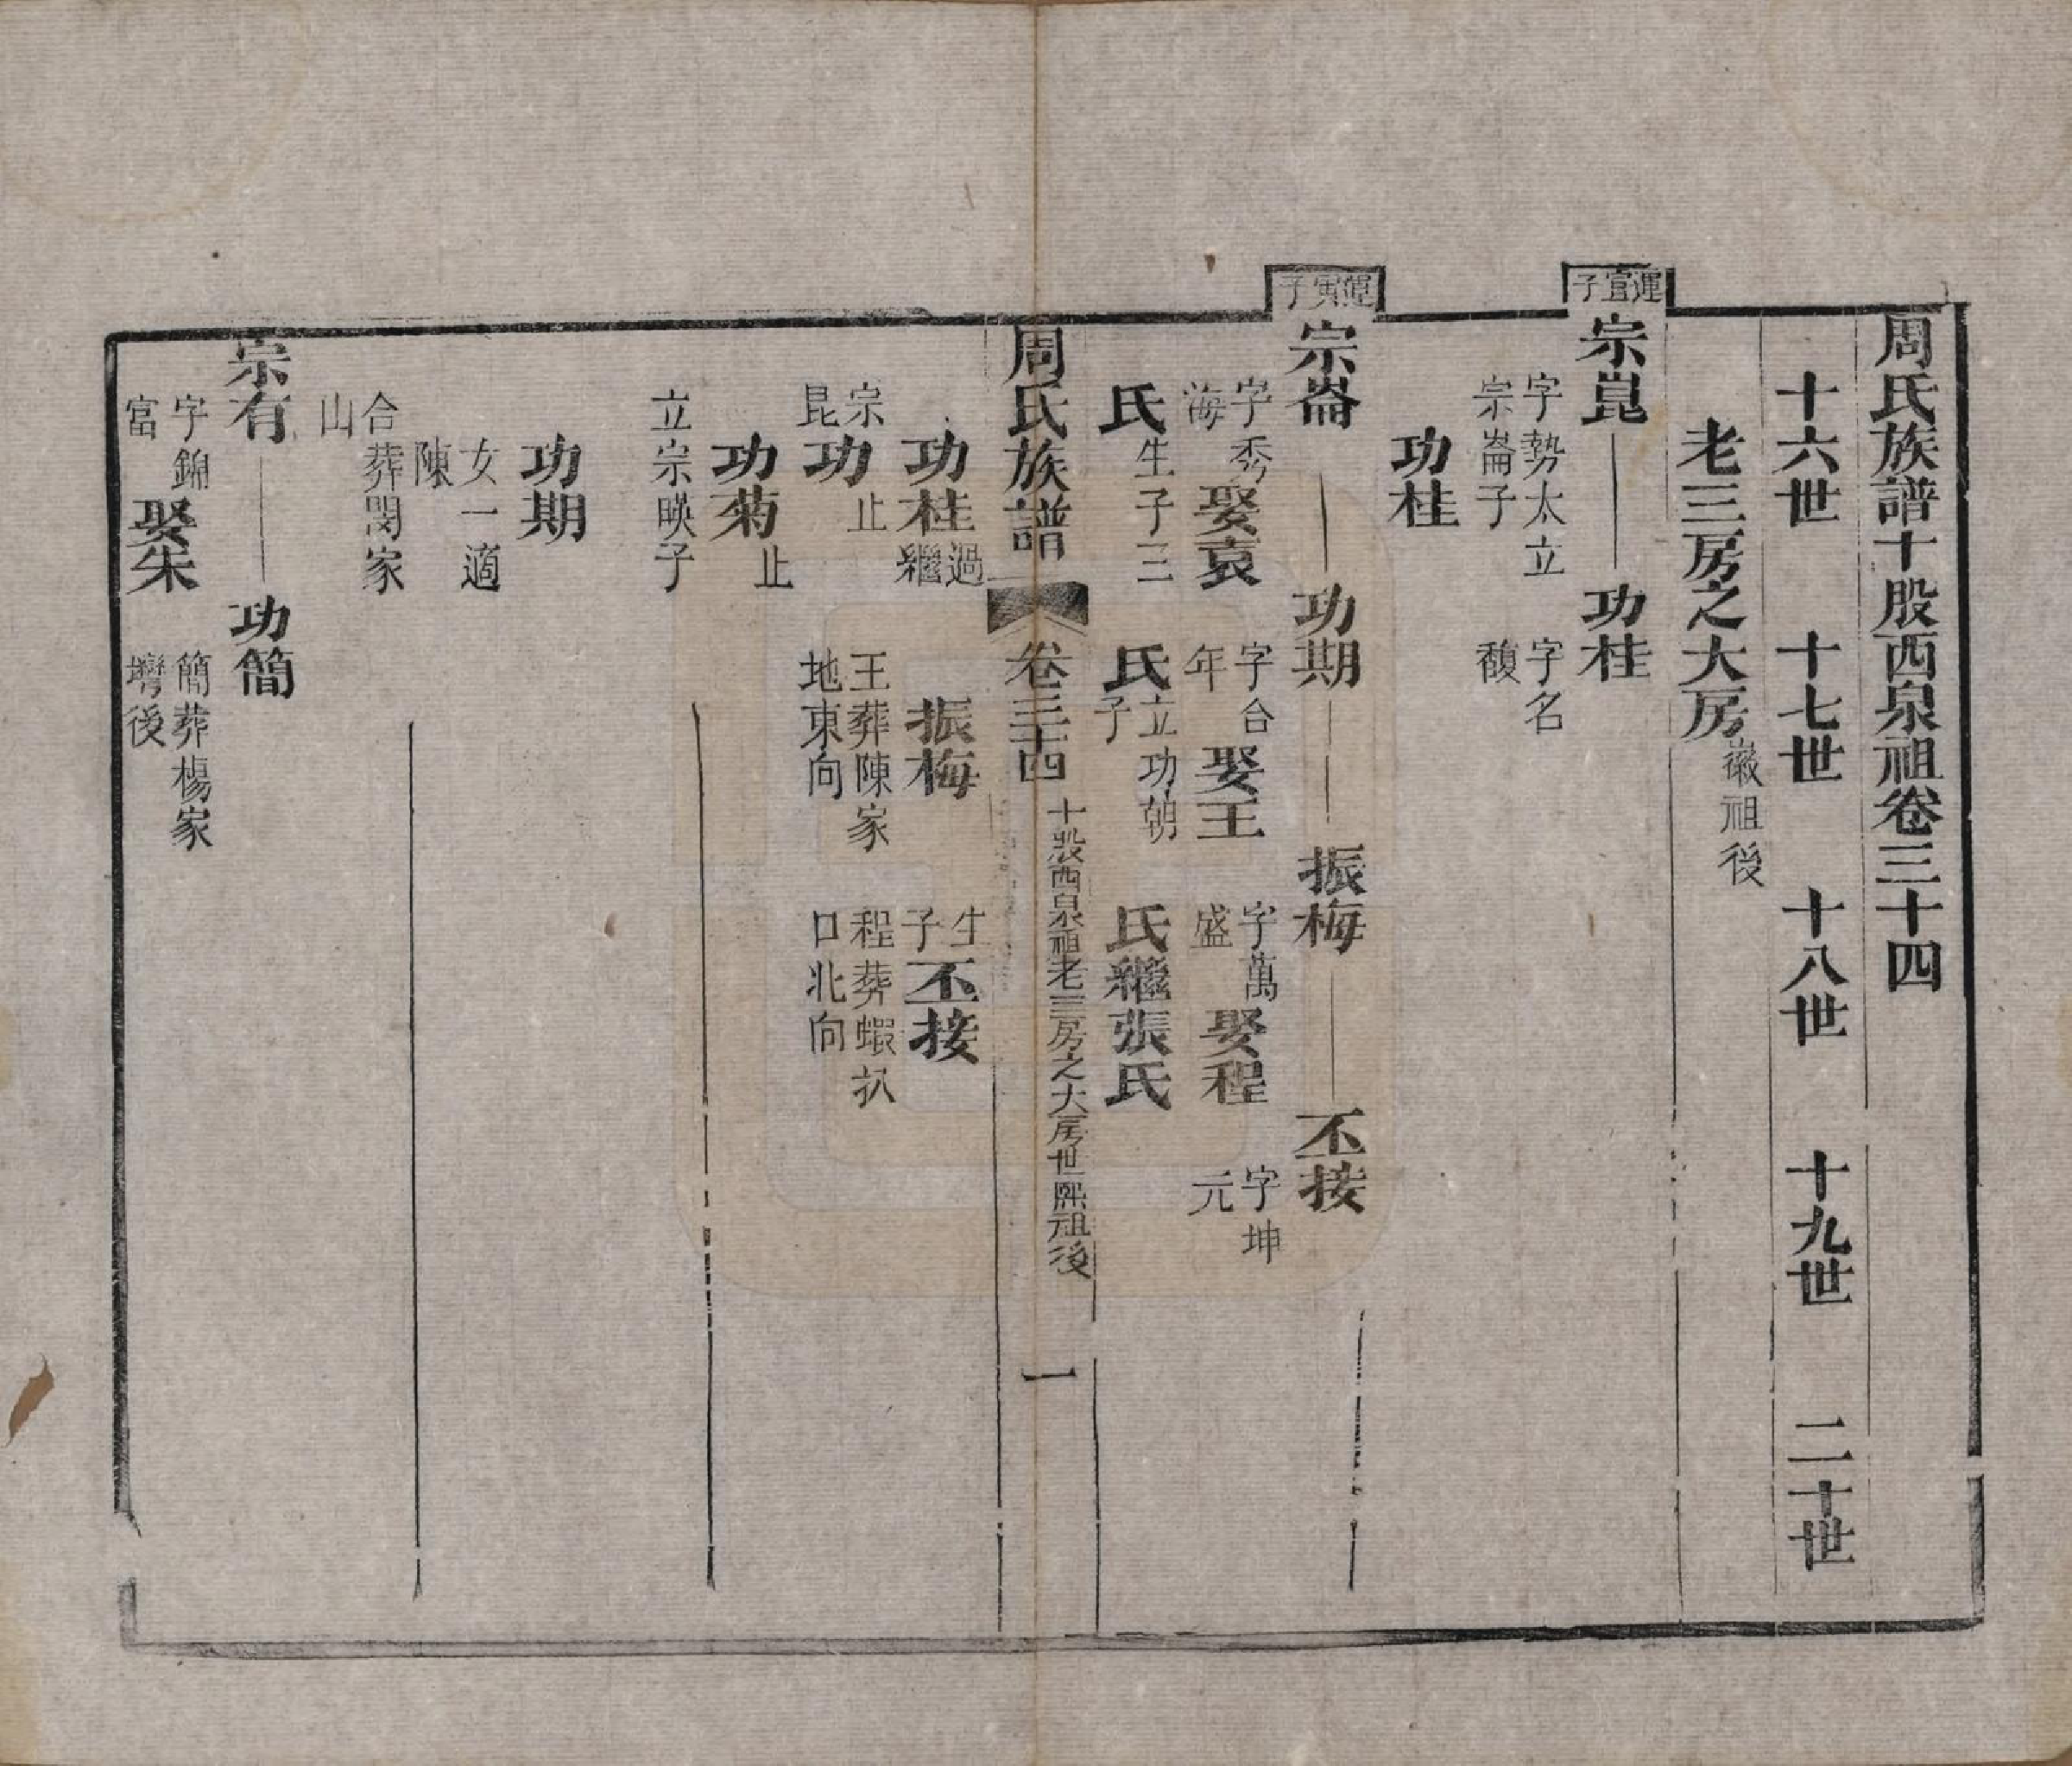 周氏族譜十股西泉祖卷三十四
十六世 十七世 十八世 十九世 二十世
老三房之大房 徽祖後
運官子
宗崑 功桂
字勢太立 字名
宗崙子 馥
功桂
運寅子
宗崙 功期 振梅 丕接
字秀海 娶袁 字合年 娶王 字萬盛 娶程 字坤元
氏 生子三 氏 立功朝子 氏繼張氏
周氏族譜 卷三十四 十股西泉祖老三房之大房世熙祖後 一
功桂 過繼 振梅 生子丕接
宗昆 王葬陳家 程葬蝦扒
功 止 地東向 口北向
功菊 止
立宗暎子
功期
女一適
陳
合葬閔家
山
宗有 功簡
字錦 簡葬楊家
富 娶朱 塆後